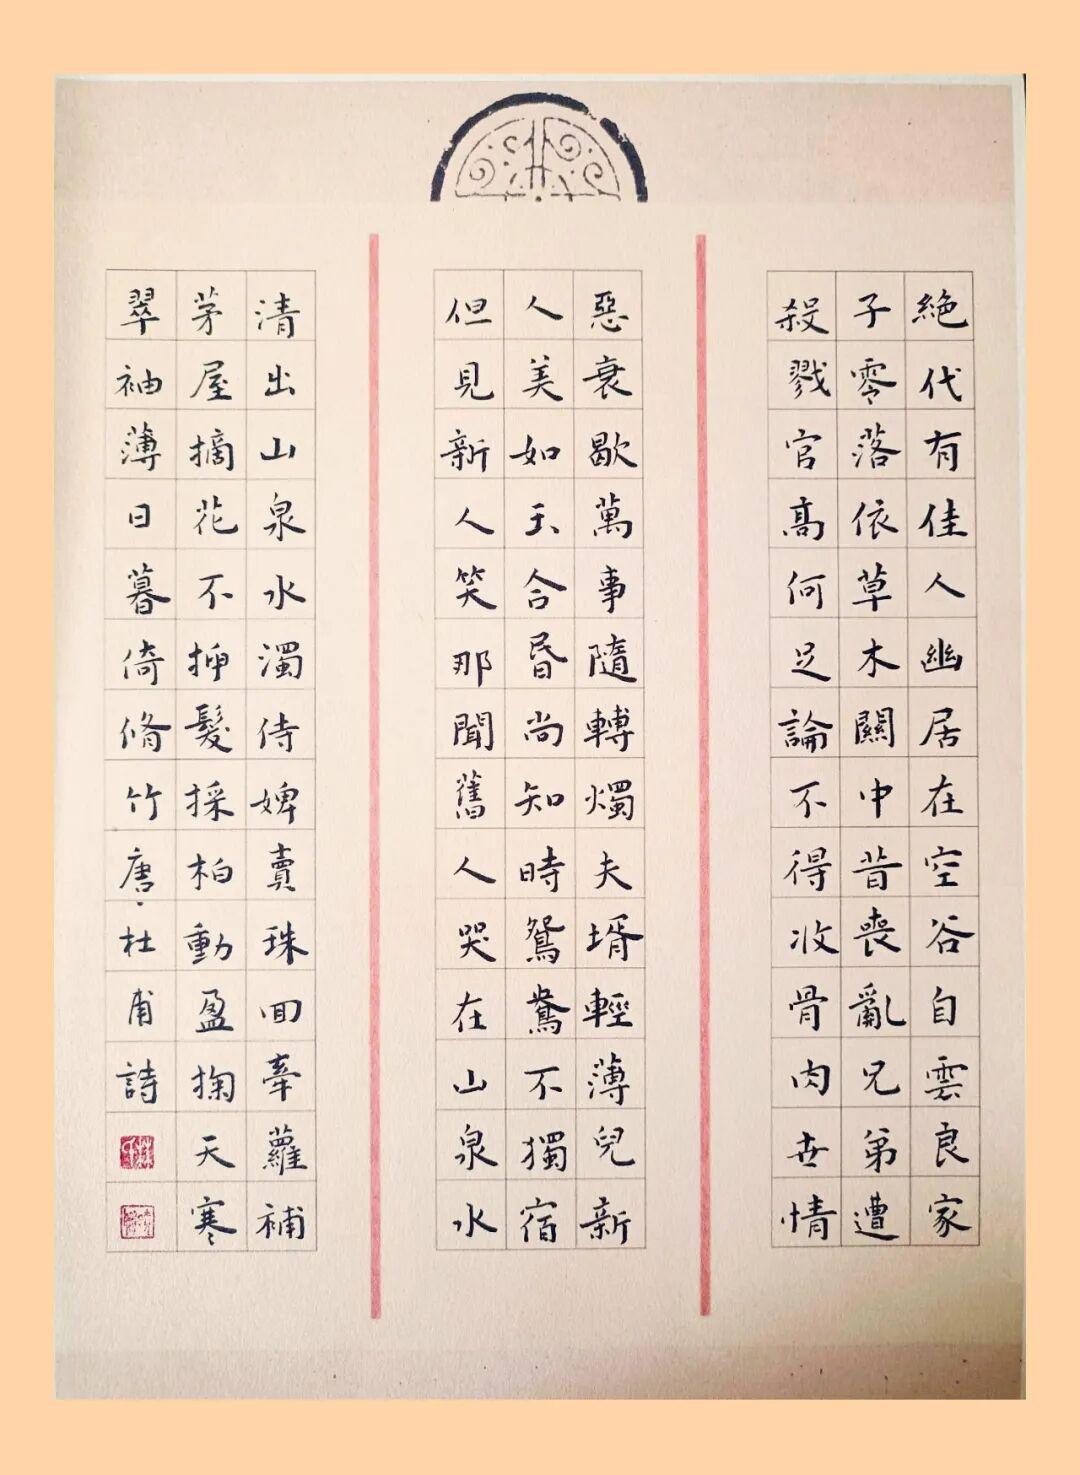 絶代有佳人幽居在空谷自雲良家
子零落依草木關中昔喪亂兄弟遭
殺戮官高何足論不得收骨肉世情
惡衰歇萬事隨轉燭夫壻輕薄兒新
人美如玉合昏尚知時鴛鴦不獨宿
但見新人笑那聞舊人哭在山泉水
清出山泉水濁侍婢賣珠回牽蘿補
茅屋摘花不插髮採柏動盈掬天寒
翠袖薄日暮倚脩竹唐杜甫詩